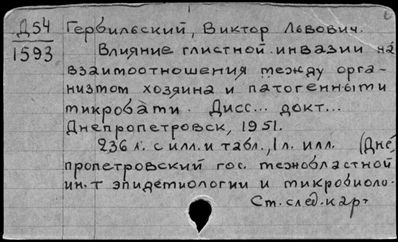 Д54
1593
Гервильский, Виктор Львович.
Влияние глистной инвазии на
взаимоотношения между орга-
низмом хозяина и патогенными
микробами. Дисс... докт...
Днепропетровск, 1951.
236 л. с илл. и табл., 1 л. илл. (Дне
пропетровский гос. межобластной
ин-т эпидемиологии и микробиоло-
Ст. след. кар-